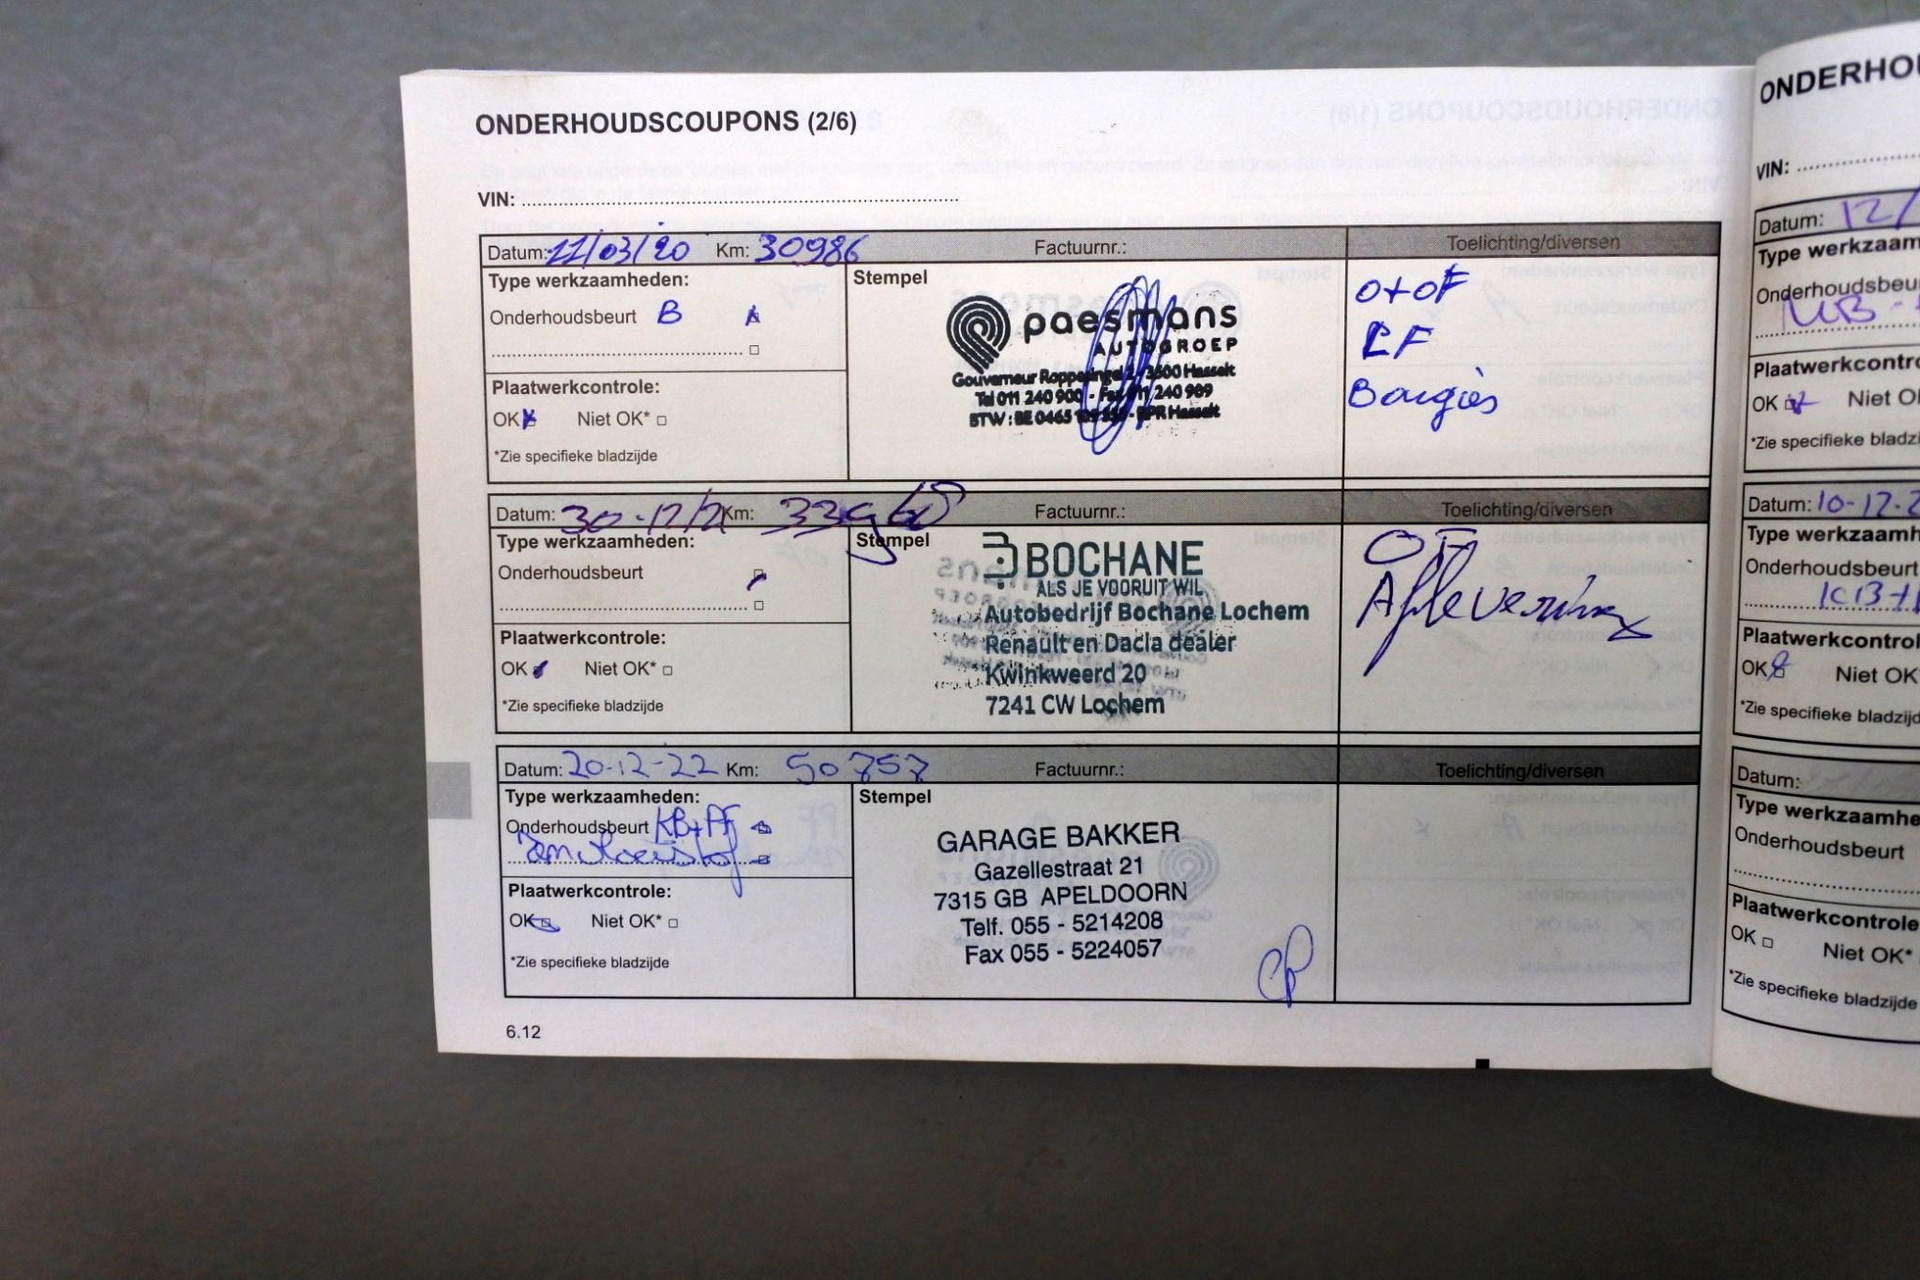 ONDERHOUDSCOUPONS (2/6)
VIN:
Datum: 11/03/20 Km: 30986 Factuurnr.: Toelichting/diversen
Type werkzaamheden:
Onderhoudsbeurt B
Stempel
paesmans
AUTOGROEP
Gouverneur Roppesingel 2 - 3500 Hasselt
Tel 011 240 900 - Fax 011 240 909
BTW : BE 0465 - RPR Hasselt
O+OF
LF
Bougies
Plaatwerkcontrole:
OK Niet OK*
*Zie specifieke bladzijde
Datum: 30-12/21 Km: Factuurnr.: Toelichting/diversen
Type werkzaamheden:
Onderhoudsbeurt
Stempel
BOCHANE
ALS JE VOORUIT WIL
Autobedrijf Bochane Lochem
Renault en Dacia dealer
Kwinkweerd 20
7241 CW Lochem
Aflevering
Plaatwerkcontrole:
OK Niet OK*
*Zie specifieke bladzijde
Datum: 20-12-22 Km: 50757 Factuurnr.: Toelichting/diversen
Type werkzaamheden:
Onderhoudsbeurt KB+PF
Remvloeistof
Stempel
GARAGE BAKKER
Gazellestraat 21
7315 GB APELDOORN
Telf. 055 - 5214208
Fax 055 - 5224057
Plaatwerkcontrole:
OK Niet OK*
*Zie specifieke bladzijde
6.12
VIN:
Datum: 12/
Onderhoudsbeurt
OK
*Zie specifieke
Datum: 10-12-2
Onderhoudsbeurt
OK Niet OK
*Zie specifieke
Datum:
Type werkzaamhe
Onderhoudsbeurt
Plaatwerkcontrole
OK Niet OK*
*Zie specifieke bladzijde